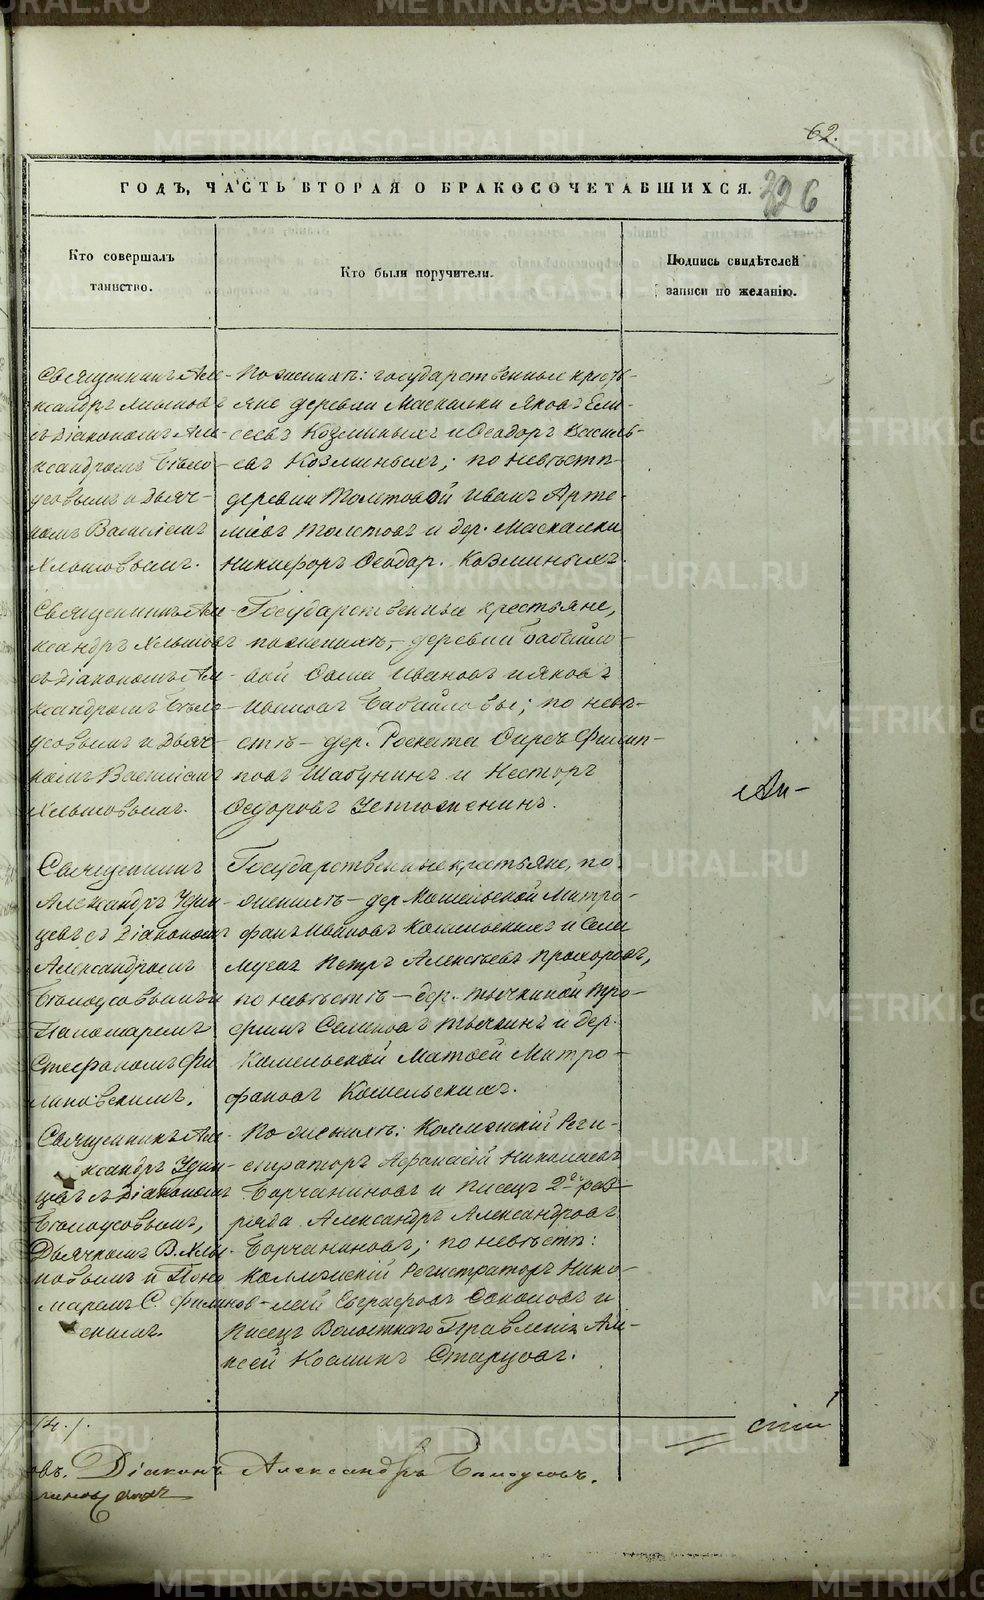 62.
ГОДЪ, ЧАСТЬ ВТОРАЯ О БРАКОСОЧЕТАВШИХСЯ.
326
Кто совершалъ
таинство.
Кто были поручители.
Подпись свидѣтелей
записи по желанію.
Священникъ Але-
ксандръ Хлыновъ
съ Діакономъ Але-
ксандромъ Бѣло-
усовымъ и Дьяч-
комъ Василіемъ
Хлыновымъ.
По женихѣ: государственные кресть-
яне деревни Маскалки Яковъ Ели-
сеевъ Козминыхъ и Ѳеодоръ Василь-
евъ Козминыхъ; по невѣстѣ
деревни Толстовой Иванъ Арте-
міевъ Толстовъ и дер. Маскалки
Никифоръ Ѳеодор. Козминыхъ.
Священникъ Але-
ксандръ Хлыновъ
съ Діакономъ Але-
ксандромъ Бѣло-
усовымъ и Дьяч-
комъ Василіемъ
Хлыновымъ.
Государственные крестьяне,
по женихѣ, – деревни Бабайло-
вой Ѳома Ивановъ и Яковъ
Ивановъ Бабайловы; по невѣ-
стѣ – дер. Роската Филип-
повъ Шабунинъ и Несторъ
Ѳедоровъ Устюженинъ.
Священникъ
Александръ Удин-
цевъ съ Діакономъ
Александромъ
Бѣлоусовымъ и
Пономаремъ
Стефаномъ Фи-
линовскимъ.
Государственные крестьяне, по
женихѣ – дер. Кошельской Митро-
фанъ Ивановъ Кошельскихъ и Села
Петръ Алексѣевъ Прохоровъ,
по невѣстѣ – дер. Тычкиной Тро-
фимъ Тычкинъ и дер.
Кошельской Матѳей Митро-
фановъ Кошельскихъ.
Священникъ Але-
ксандръ Удин-
цевъ съ Діакономъ
Бѣлоусовымъ,
Дьячкомъ В. Хлы-
новымъ и Поно-
маремъ С. Филинов-
скимъ.
По женихѣ: Коллежскій Реги-
страторъ Аѳанасій Николаевъ
Борчаниновъ и Писецъ 2го раз-
ряда Александръ Александровъ
Борчаниновъ; по невѣстѣ:
Коллежскій Регистраторъ Нико-
лай и
Писецъ Волостнаго Правленія Але-
ксѣй Старцовъ.
Діаконъ Александръ Бѣлоусовъ.
METRIKI.GASO-URAL.RU